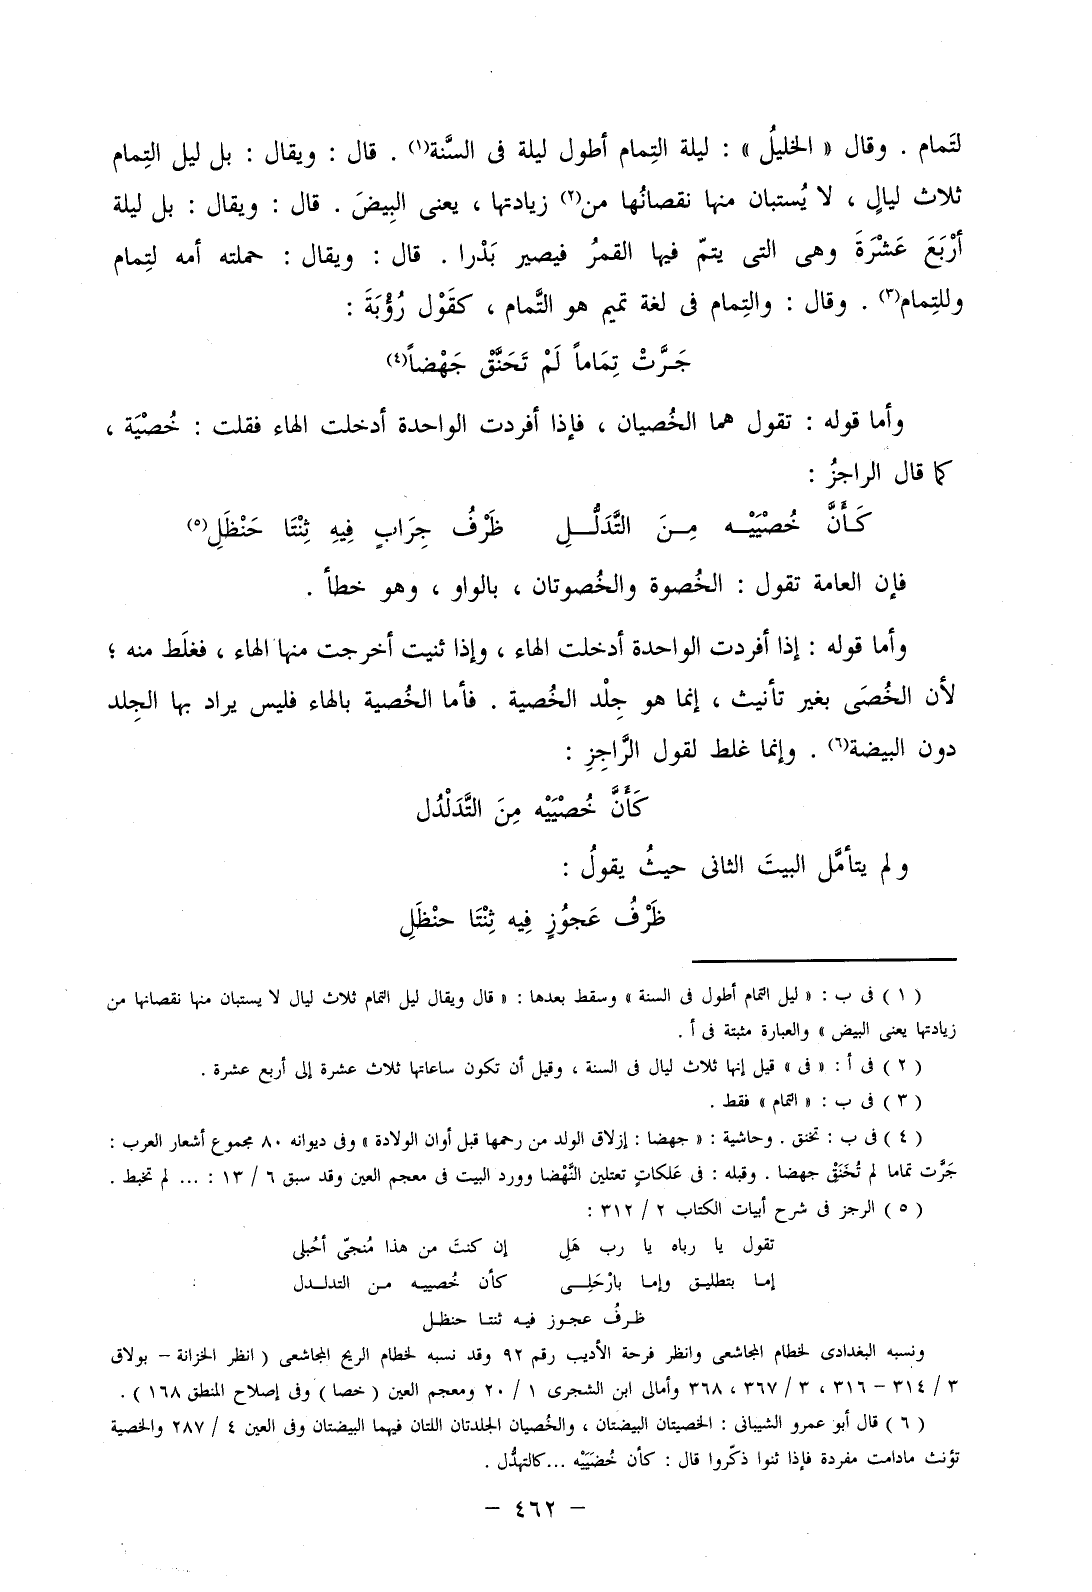 لتَمام . وقال « الخليلُ » : ليلة التِمام أطول ليلة فى السَّنة(١) . قال : ويقال : بل ليل التِمام
ثلاث ليالٍ ، لا يُستبان منها نقصانُها من(٢) زيادتها ، يعنى البِيضَ . قال : ويقال : بل ليلة
أرْبَعَ عَشْرَةَ وهى التى يتمّ فيها القمرُ فيصير بَدْرا . قال : ويقال : حملته أمه لتِمام
وللتِمام(٣) . وقال : والتِمام فى لغة تميم هو التَّمام ، كقَوْل رُؤْبَةَ :
جَرَّتْ تِمَاماً لَمْ تَحَنَّقْ جَهْضاً(٤)
وأما قوله : تقول هما الخُصيان ، فإذا أفردت الواحدة أدخلت الهاء فقلت : خُصْيَة ،
كما قال الراجزُ :
كَأَنَّ خُصْيَيْه مِنَ التَّدَلُّلِ ظَرْفُ جِرَابٍ فِيهِ ثِنْتَا حَنْظَلِ(٥)
فإن العامة تقول : الخُصوة والخُصوتان ، بالواو ، وهو خطأ .
وأما قوله : إذا أفردت الواحدة أدخلت الهاء ، وإذا ثنيت أخرجت منها الهاء ، فغلَط منه ؛
لأن الخُصَى بغير تأنيث ، إنما هو جِلْد الخُصية . فأما الخُصية بالهاء فليس يراد بها الجِلد
دون البيضة(٦) . وإنما غلط لقول الرَّاجِزِ :
كَأَنَّ خُصْيَيْه مِنَ التَّدَلْدُل
ولم يتأمَّل البيتَ الثانى حيثُ يقولُ :
ظَرْفُ عَجوُزٍ فِيه ثِنْتَا حنْظَلِ
( ١ ) فى ب : « ليل التمام أطول فى السنة » وسقط بعدها : « قال ويقال ليل التمام ثلاث ليال لا يستبان منها نقصانها من
زيادتها يعنى البيض » والعبارة مثبتة فى أ .
( ٢ ) فى أ : « فى » قيل إنها ثلاث ليال فى السنة ، وقيل أن تكون ساعاتها ثلاث عشرة إلى أربع عشرة .
( ٣ ) فى ب : « التمام » فقط .
( ٤ ) فى ب : تختق . وحاشية : « جهضا : إزلاق الولد من رحمها قبل أوان الولادة » وفى ديوانه ٨٠ مجموع أشعار العرب :
جَرَّت تماما لم تُخَنَقْ جهضا . وقبله : فى عَلكاتٍ تعتلين النَّهْضا وورد البيت فى معجم العين وقد سبق ٦ / ١٣ : ... لم تخبط .
( ٥ ) الرجز فى شرح أبيات الكتاب ٢ / ٣١٢ :
تقول يا رباه يا رب هَلِ إن كنتَ من هذا مُنجىّ أحُبلى
إما بتطليق وإما بارْحَلِى كأن خُصييه من التدلدل
ظرفُ عجوز فيه ثنتا حنظل
ونسبه البغدادى لخطام المجاشعى وانظر فرحة الأديب رقم ٩٢ وقد نسبه لخطام الريح المجاشعى ( انظر الخزانة – بولاق
٣ / ٣١٤ – ٣١٦ ، ٣ / ٣٦٧ ، ٣٦٨ وأمالى ابن الشجرى ١ / ٢٠ ومعجم العين ( خصا ) وفى إصلاح المنطق ١٦٨ ) .
( ٦ ) قال أبو عمرو الشيبانى : الخصيتان البيضتان ، والخُصيان الجلدتان اللتان فيهما البيضتان وفى العين ٤ / ٢٨٧ والخصية
تؤنث مادامت مفردة فإذا ثنوا ذكّروا قال : كأن خُصَيَيْه ... كالتهدُّل .
– ٤٦٢ –